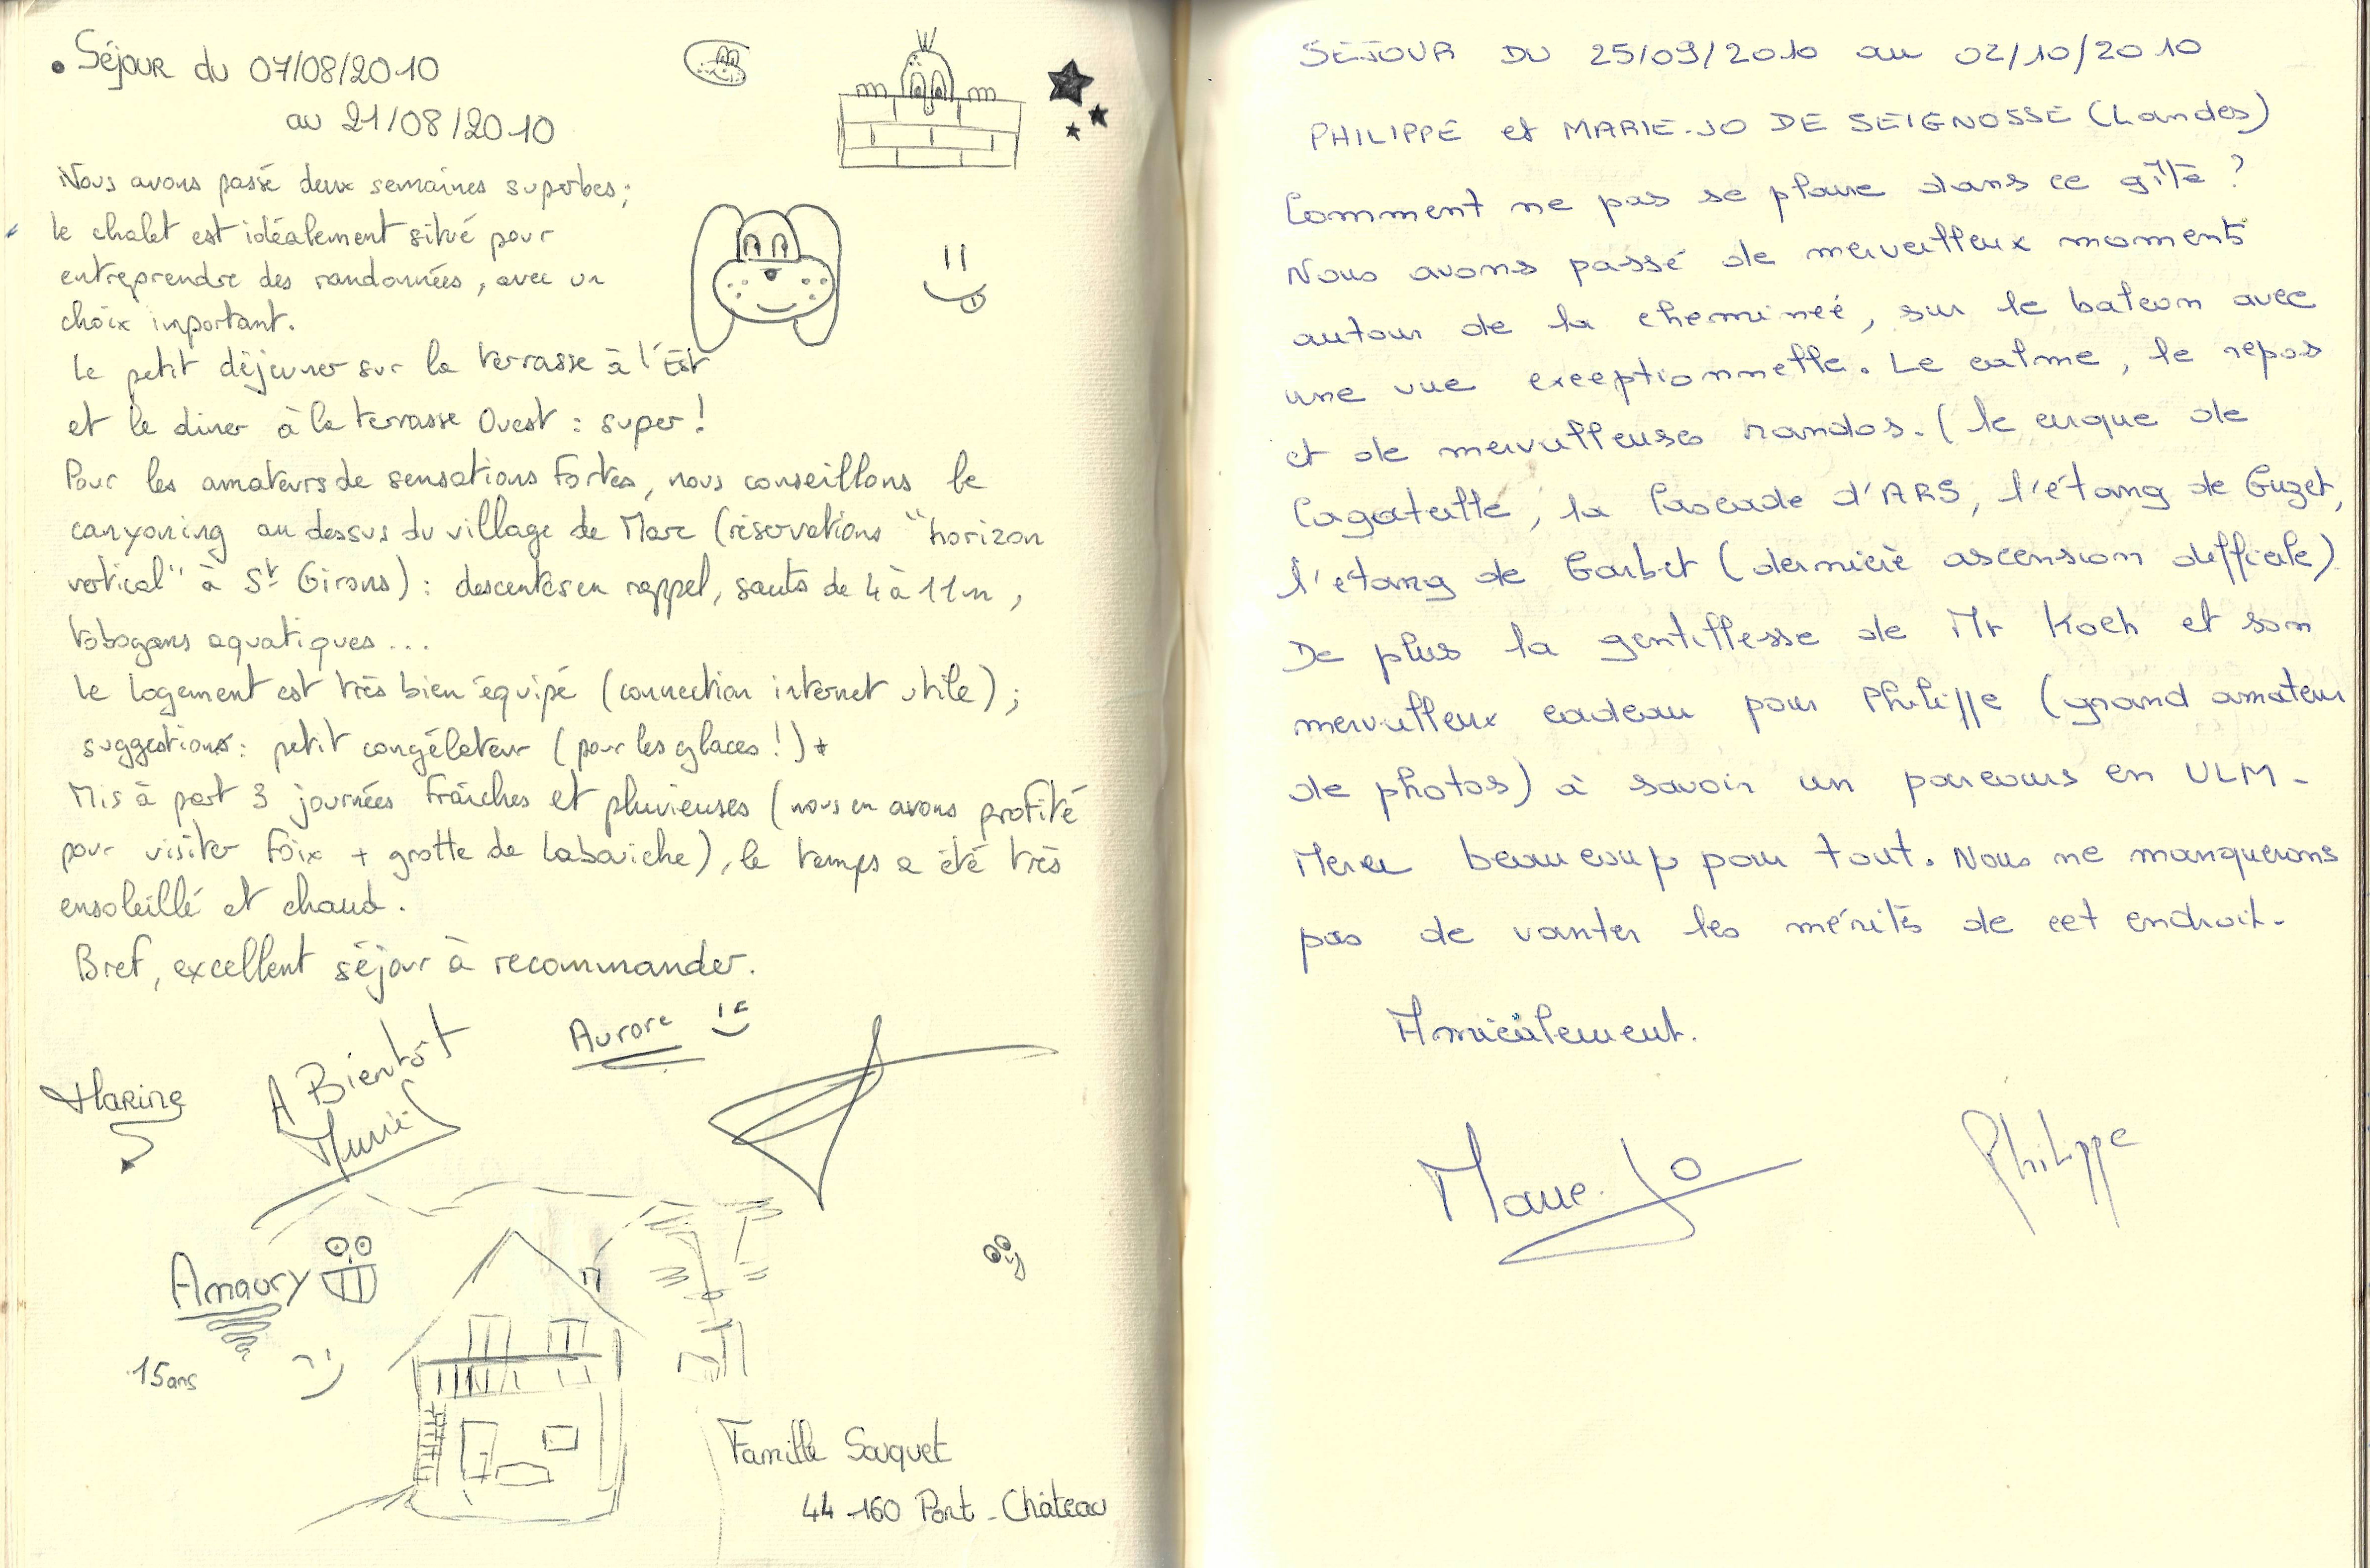 • Séjour du 07/08/2010
au 21/08/2010
Nous avons passé deux semaines superbes;
le chalet est idéalement situé pour
entreprendre des randonnées, avec un
choix important.
Le petit déjeuner sur la terrasse à l'Est
et le diner à la terrasse Ouest : super!
Pour les amateurs de sensations fortes, nous conseillons le
canyoning au dessus du village de Marc (réservations "horizon
vertical" à St Girons) : descentes en rappel, sauts de 4 à 11m,
tobogans aquatiques...
Le logement est très bien équipé (connection internet utile);
suggestions: petit congélateur (pour les glaces!)
Mis à part 3 journées fraîches et pluvieuses (nous en avons profité
pour visiter Foix + grotte de Labouiche), le temps a été très
ensoleillé et chaud.
Bref, excellent séjour à recommander.
Aurore
A Bientôt
Marine
Muriel
Amaury
15 ans
Famille Souquet
44-160 Pont-Château
SEJOUR DU 25/09/2010 au 02/10/2010
PHILIPPE et MARIE-JO DE SEIGNOSSE (Landes)
Comment ne pas se plaire dans ce gîte?
Nous avons passé de merveilleux moments
autour de la cheminée, sur le balcon avec
une vue exceptionnelle. Le calme, le repos
et de merveilleuses randos. (le cirque de
Cagateille, la Cascade d'ARS, l'étang de Guzet,
l'étang de Garbet (dernière ascension difficile)
De plus la gentillesse de Mr Koch et son
merveilleux cadeau pour Philippe (grand amateur
de photos) à savoir un parcours en ULM-
Merci beaucoup pour tout. Nous ne manquerons
pas de vanter les mérites de cet endroit-
Amicalement.
Marie-Jo
Philippe